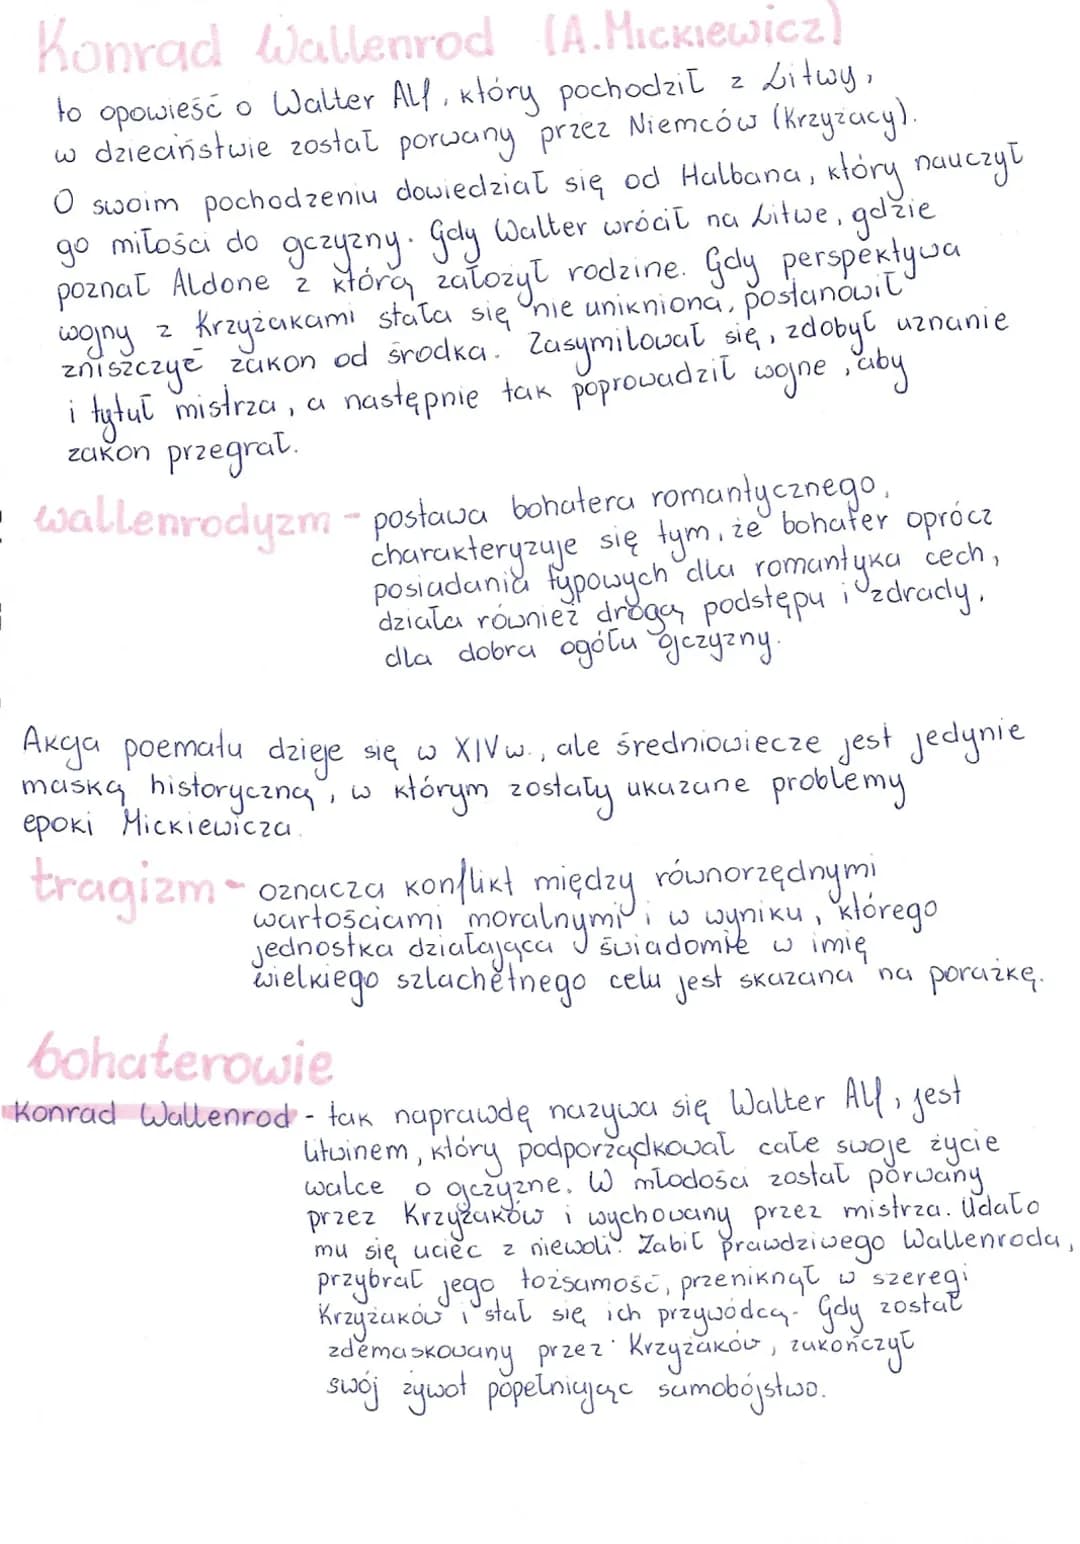 Konrad Wallenrod (A.Mickiewicz)
to opowieść o Walter Alf, który pochodził z Litwy,
w dzieciństwie został porwany przez Niemców (Krzyżacy).
O swoim pochodzeniu dowiedział się od Halbana, który nauczył
go miłości do ojczyzny. Gdy Walter wrócił na Litwe, gdzie
poznał Aldone z którą założył rodzine. Gdy perspektywa
wojny z Krzyżakami stała się nie unikniona, postanowił
zniszczyć zakon od środka. Zasymilował się, zdobył uznanie
i tytuł mistrza, a następnie tak poprowadził wojne, aby
zakon przegrał.
wallenrodyzm - postawa bohatera romantycznego,
charakteryzuje się tym, że bohater oprócz
posiadania typowych dla romantyka cech,
działa również drogą podstępu i zdrady,
dla dobra ogółu ojczyzny.
Akcja poematu dzieje się w XIV w., ale średniowiecze jest jedynie
maską historyczną, w którym zostały ukazane problemy
epoki Mickiewicza.
tragizm - oznacza konflikt między równorzędnymi
wartościami moralnymi i w wyniku, którego
jednostka działająca świadomie w imię
wielkiego szlachetnego celu jest skazana na porażkę.
bohaterowie
Konrad Wallenrod - tak naprawdę nazywa się Walter Alf, jest
litwinem, który podporządkował całe swoje życie
walce o ojczyzne. W młodości został porwany
przez Krzyżaków i wychowany przez mistrza. Udało
mu się uciec z niewoli. Zabił prawdziwego Wallenroda,
przybrał jego tożsamość, przeniknął w szeregi
Krzyżaków i stał się ich przywódcą. Gdy został
zdemaskowany przez Krzyżaków, zakończył
swój żywot popełniając samobójstwo.